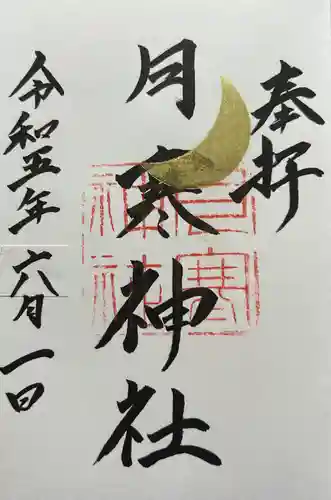 奉拝
月寒神社
令和五年六月一日
月寒
神社